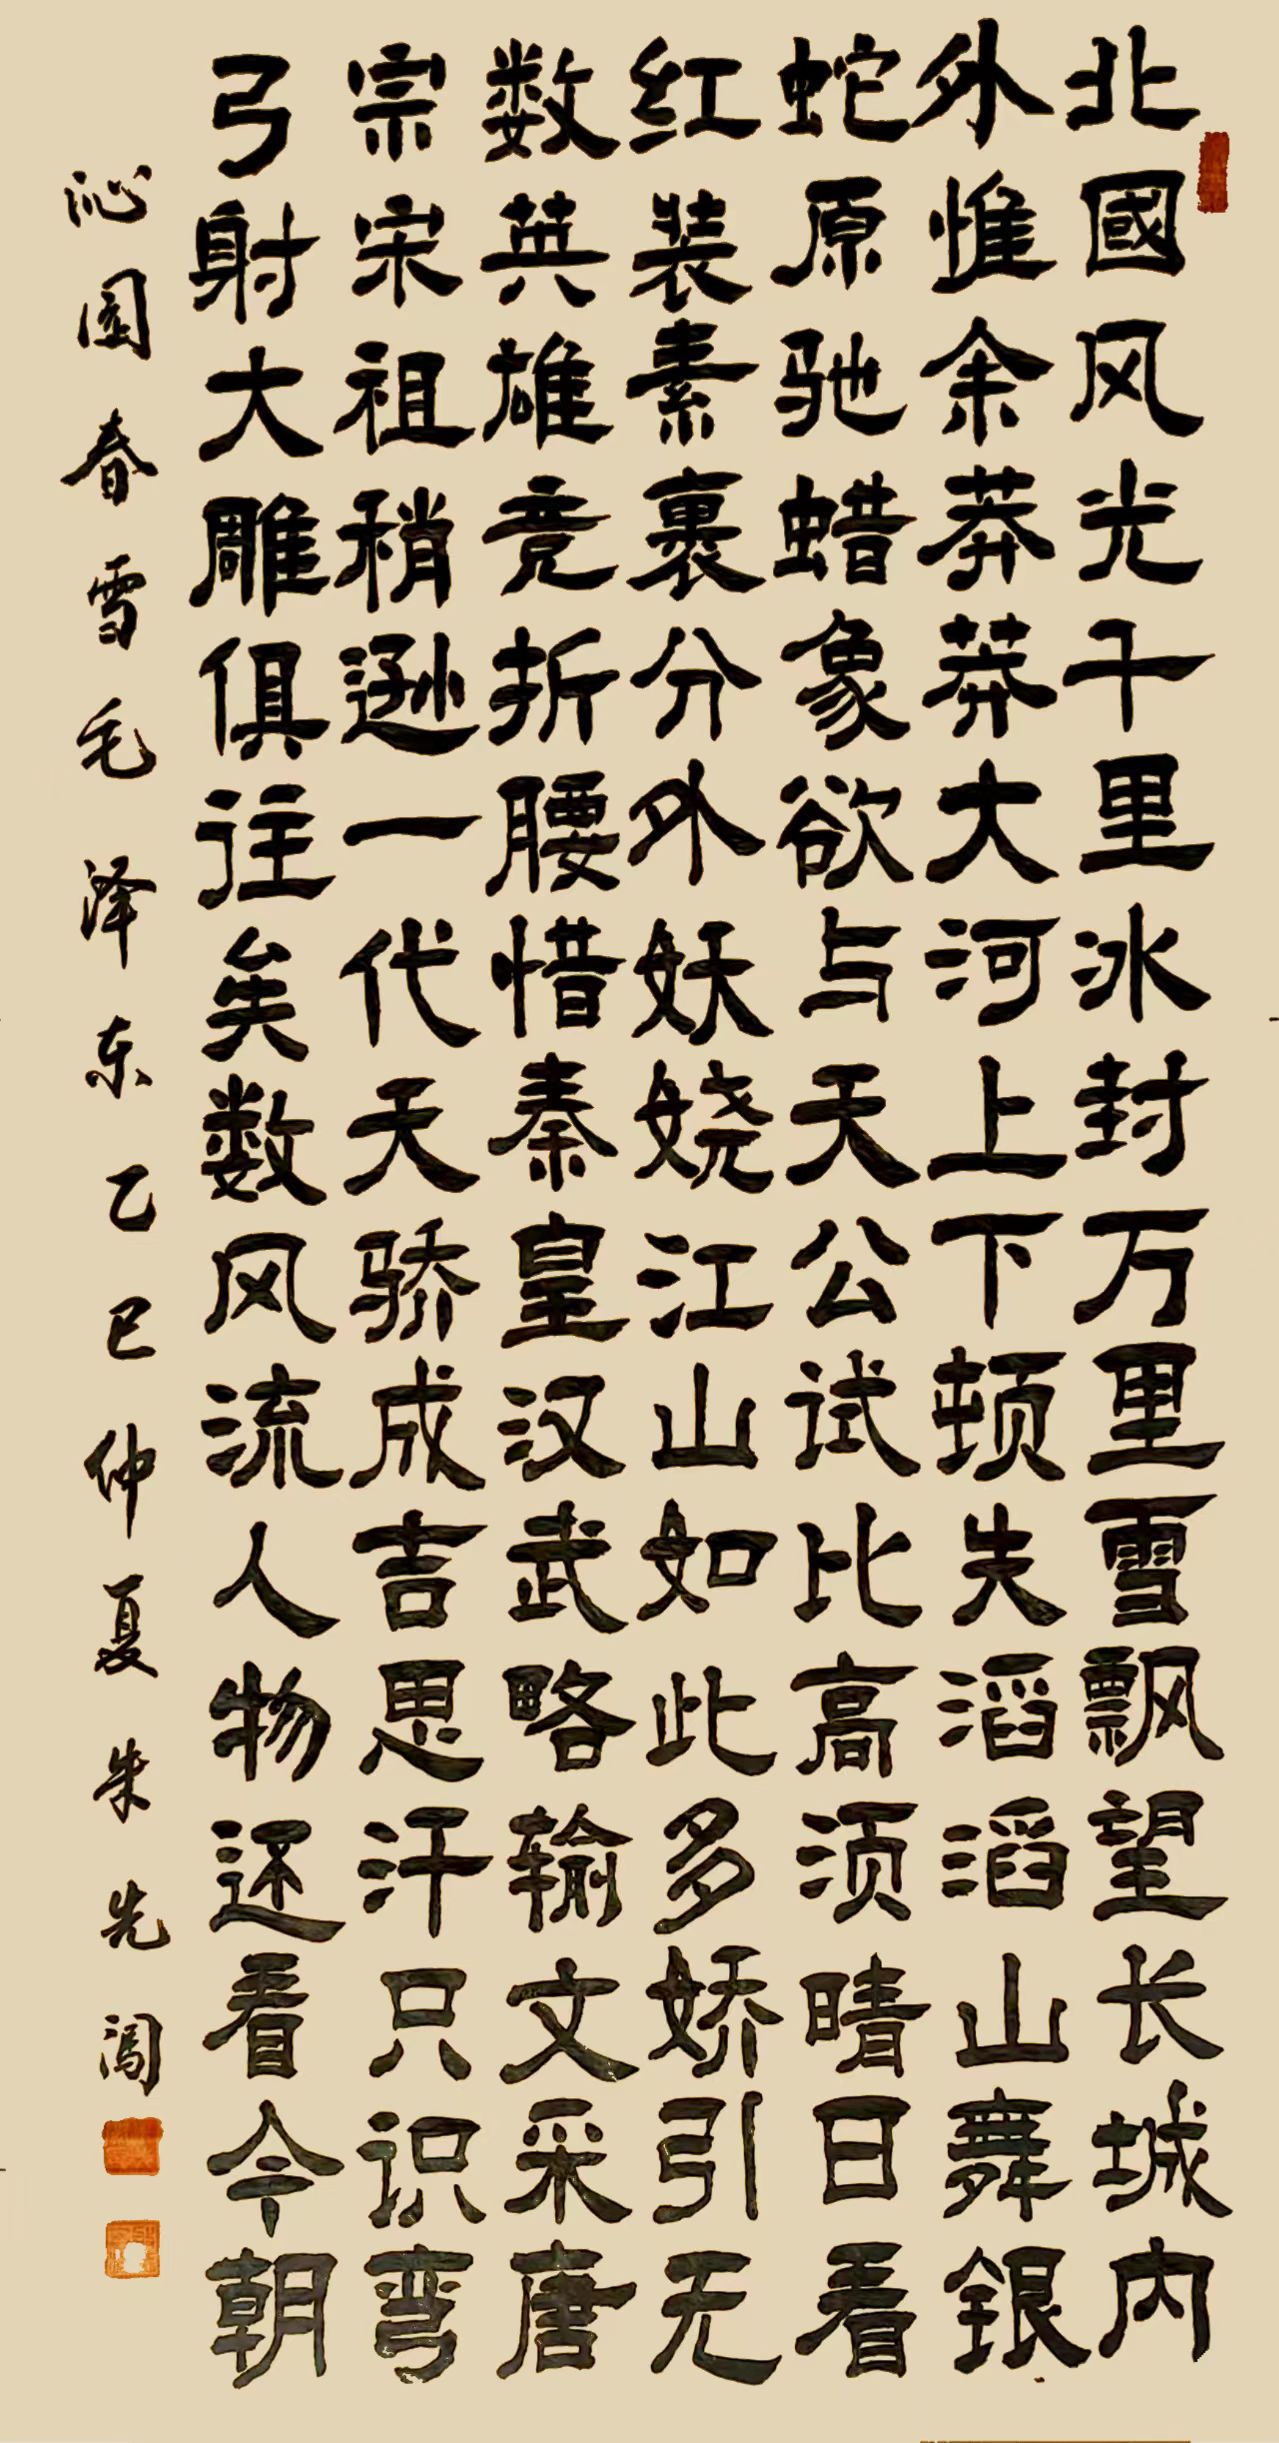 北國风光千里冰封万里雪飘望长城内
外惟余莽莽大河上下顿失滔滔山舞银
蛇原驰蜡象欲与天公试比高须晴日看
红装素裹分外妖娆江山如此多娇引无
数英雄竞折腰惜秦皇汉武略输文采唐
宗宋祖稍逊一代天骄成吉思汗只识弯
弓射大雕俱往矣数风流人物还看今朝
沁園春雪毛泽东乙巳仲夏朱先闯